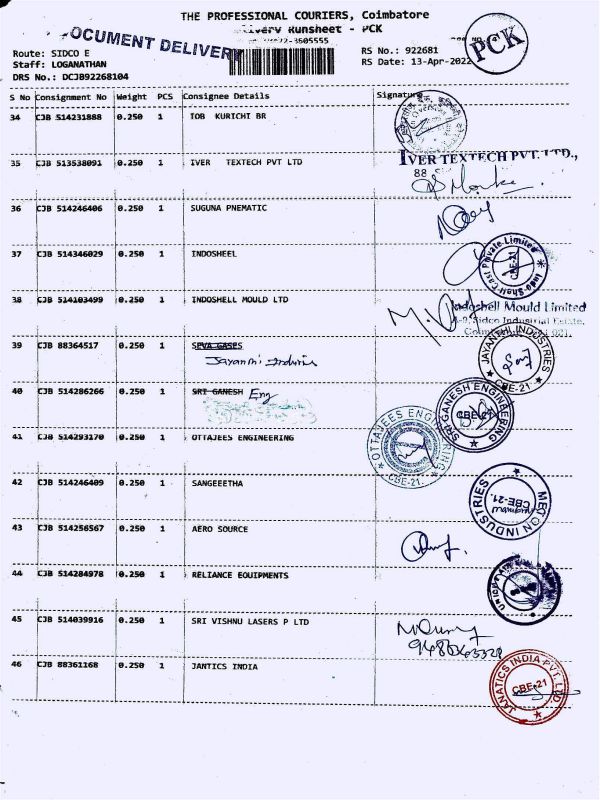 THE PROFESSIONAL COURIERS, Coimbatore
DOCUMENT DELIVERY
Runsheet - PCK
PCK
Route: SIDCO E
RS No.: 922681
Staff: LOGANATHAN
RS Date: 13-Apr-2022
DRS No.: DCJB92268104
S No Consignment No Weight PCS Consignee Details Signature
34 CJB 514231888 0.250 1 IOB KURICHI BR
35 CJB 513538091 0.250 1 IVER TEXTECH PVT LTD
IVER TEXTECH PVT. LTD.,
88
36 CJB 514246406 0.250 1 SUGUNA PNEMATIC
37 CJB 514346029 0.250 1 INDOSHEEL
Indo Shell Cast Private Limited
CBE-21
38 CJB 514103499 0.250 1 INDOSHELL MOULD LTD
Indoshell Mould Limited
Sidco Industrial Estate,
39 CJB 88364517 0.250 1 SEVA GASES
Jayanthi Industries
JAYANTHI INDUSTRIES
CBE-21
40 CJB 514286266 0.250 1 SRI GANESH Eng
SRI GANESH ENGINEERING
CBE-21
41 CJB 514293170 0.250 1 OTTAJEES ENGINEERING
OTTAJEES ENGINEERING
CBE-21.
42 CJB 514246409 0.250 1 SANGEEETHA
INDUSTRIES
CBE-21.
43 CJB 514256567 0.250 1 AERO SOURCE
44 CJB 514284978 0.250 1 RELIANCE EQUIPMENTS
45 CJB 514039916 0.250 1 SRI VISHNU LASERS P LTD
46 CJB 88361168 0.250 1 JANTICS INDIA
JANATICS INDIA PVT. LTD
CBE-21